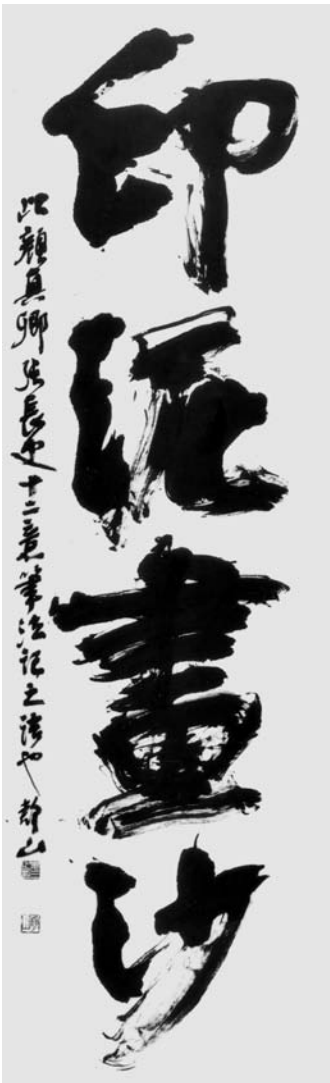 印泥畫沙
此顏真卿張長史十二意筆法記之語也 靜山